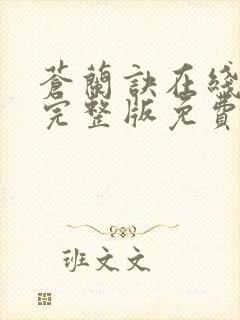 蒼蘭訣在綫
完整版免費
班文文